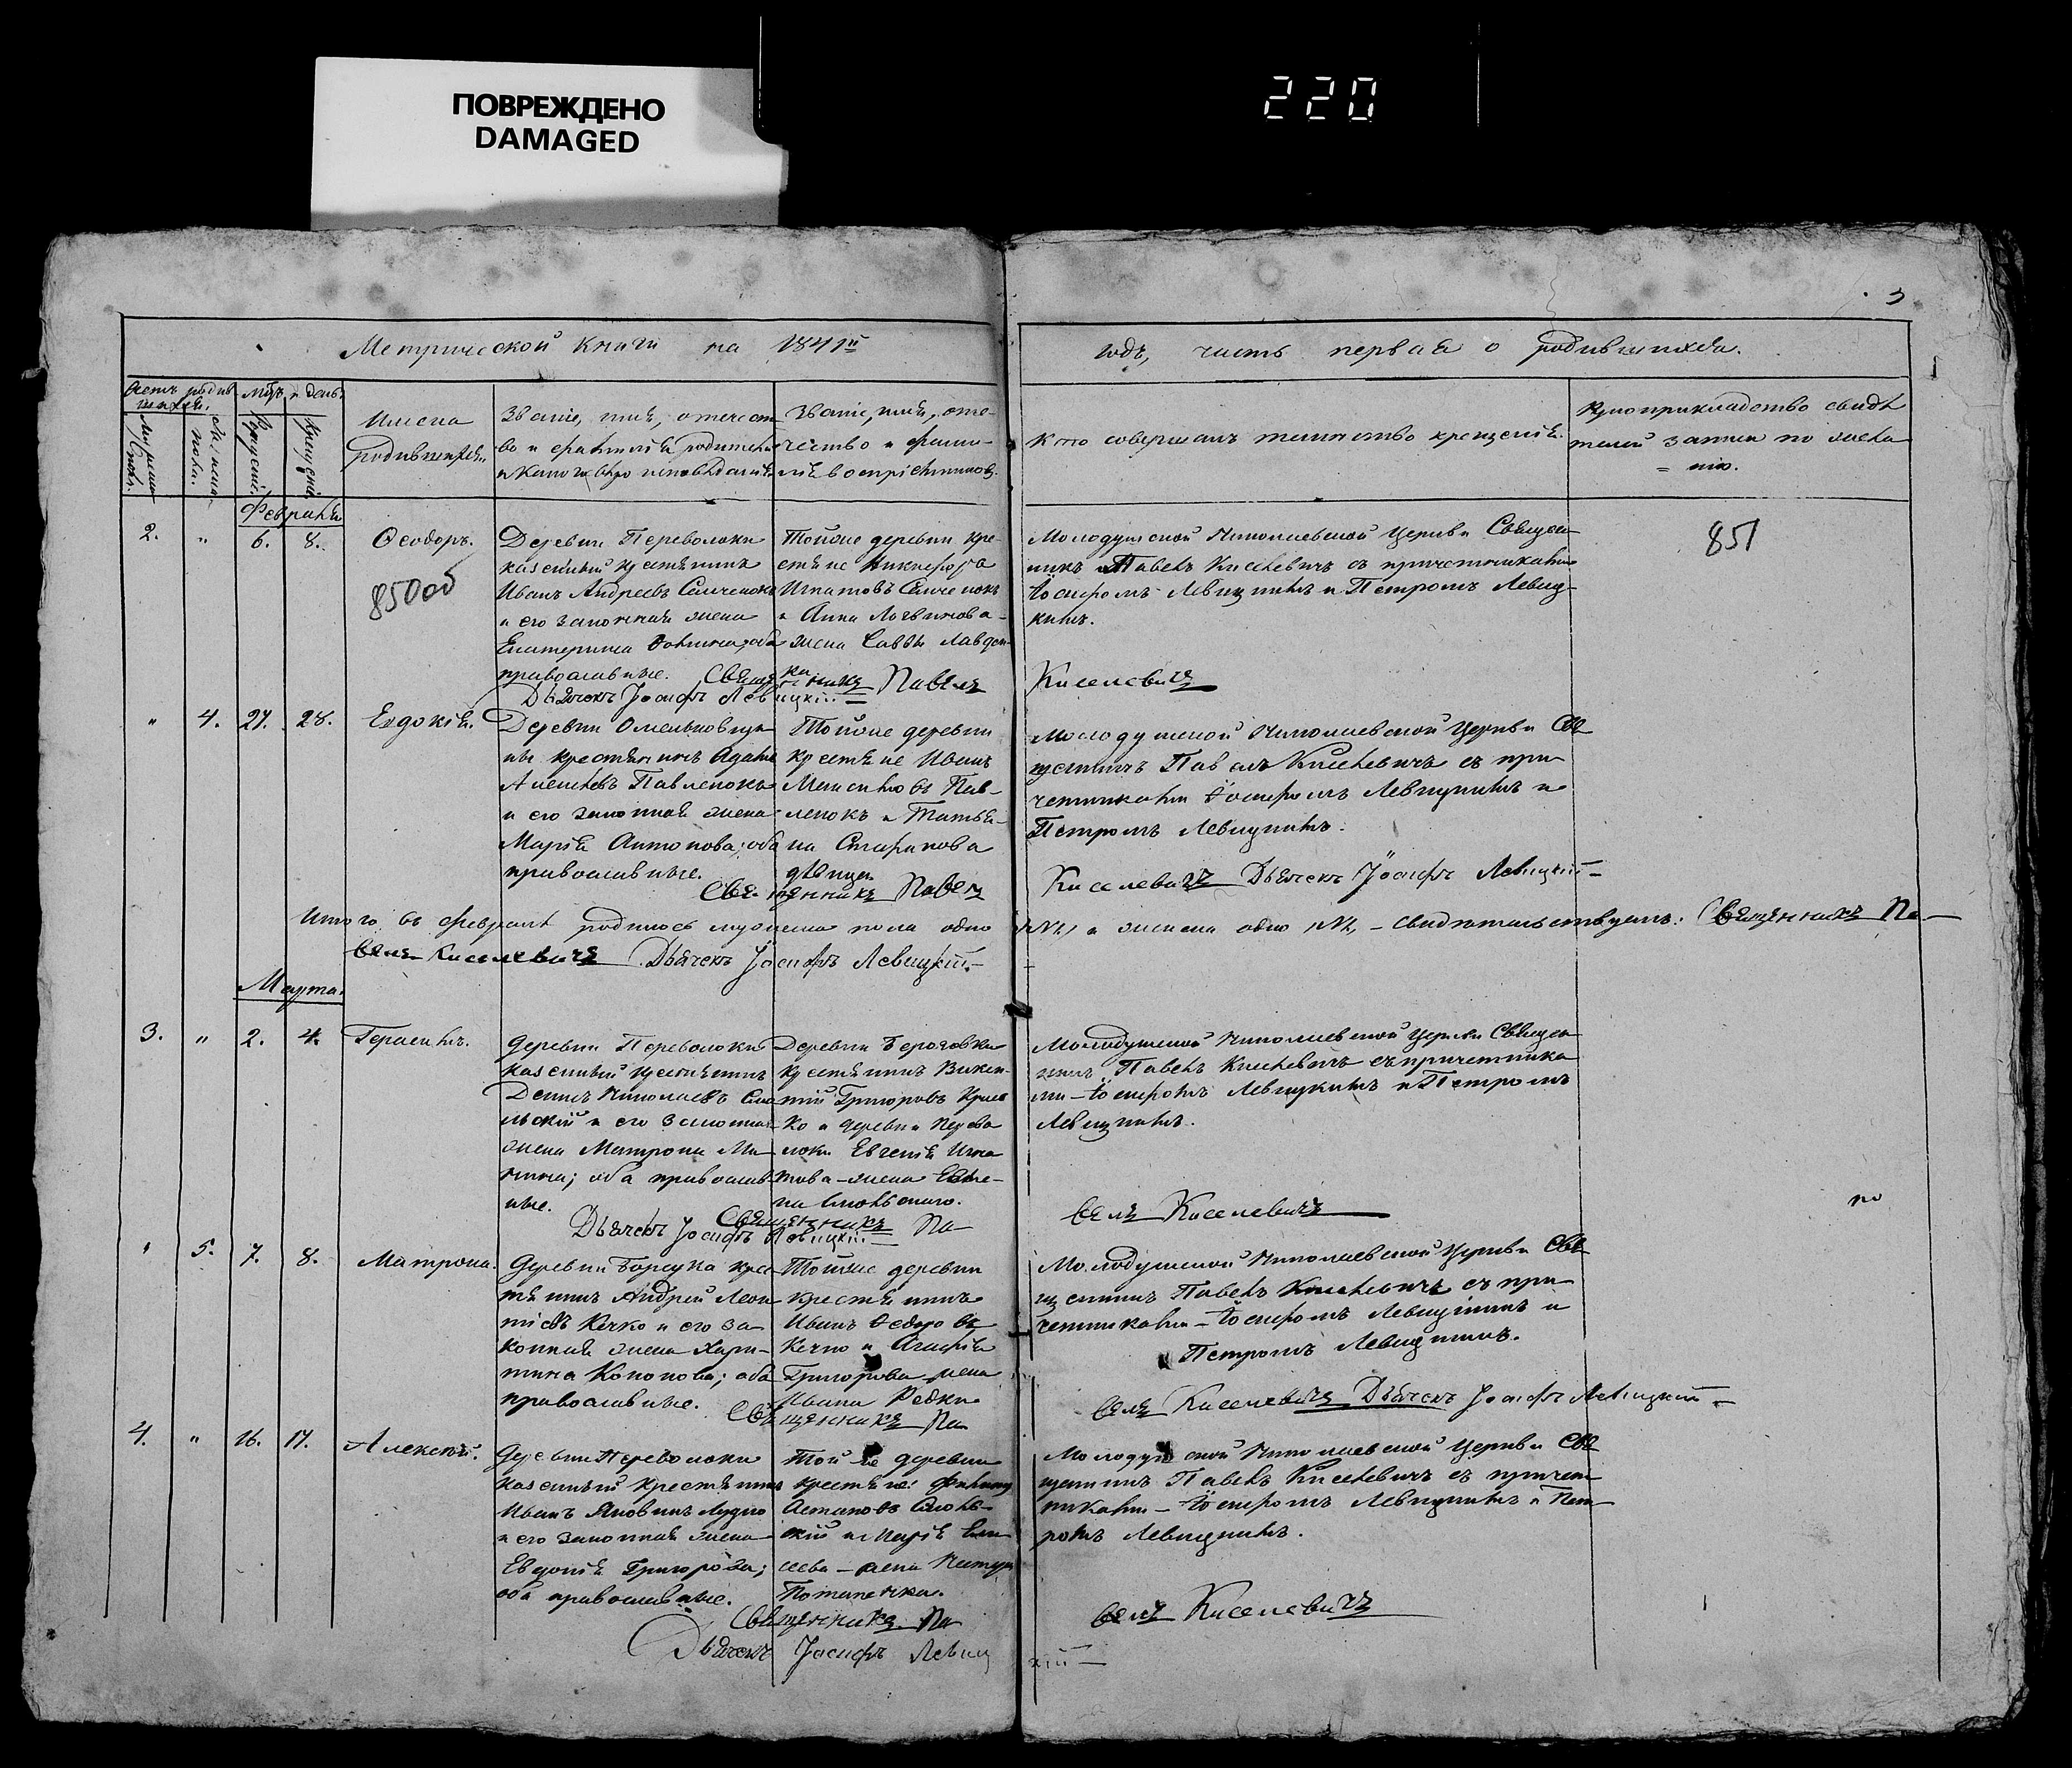 ПОВРЕЖДЕНО
DAMAGED
220
3
Метрической книги на 1841й
годъ, часть первая о родившихся.
Счетъ родив
шихся.
Мѣц. и день
Мужеска
пола.
Женска
пола.
Рожденія.
Крещенія.
Имена
родившихся.
Званіе, имя, отечест
во и фамилія родителей
и какого вѣроисповѣданія
Званіе, имя, оте-
чество и фами-
лія воспріемниковъ.
Кто совершалъ таинство крещенія.
Рукоприкладство свидѣ
телей записи по жела
= нію.
Февраля
2. „ 6. 8. Ѳеодоръ.
850об
851
Деревни Переволоки
казенный крестьянинъ
Иванъ Андреевъ Самченокъ
и его законная жена
Екатерина оба
православные.
Тойже деревни кре-
стьяне Никифоръ
Игнатовъ Самченокъ
и Анна Логвинова
жена Саввы
Молодушской Николаевской Церкви Священ
никъ Павелъ Киселевичъ съ причетниками
Іосифомъ Левицкимъ и Петромъ Левиц-
кимъ.
Священникъ Павелъ Киселевичъ
Дьячекъ Іосифъ Левицкій
„ 4. 27. 28. Евдокія.
Деревни Омельковщи
ны крестьянинъ Адамъ
Алексѣевъ Павленокъ
и его законная жена
Марія Антонова; оба
православные.
Тойже деревни
крестьяне Иванъ
Пав-
ленокъ и Татья-
на
дѣвица
Молодушской Николаевской Церкви Свя
щенникъ Павелъ Киселевичъ съ при
четниками Іосифомъ Левицкимъ и
Петромъ Левицкимъ.
Священникъ Павелъ Киселевичъ Дьячекъ Іосифъ Левицкій
Итого въ февралѣ родилось мужеска пола одно №1, а женска одно №1, - свидѣтельствуемъ: Священникъ Па-
велъ Киселевичъ Дьячекъ Іосифъ Левицкій.
Марта.
3. „ 2. 4. Герасимъ.
Деревни Переволоки
казенный крестьянинъ
Денисъ Николаевъ Смо
льскій и его законная
жена Матрона Ми
нина; оба православ
ные.
Деревни Береговки
крестьянинъ Викен-
тій Григоровъ
ко и деревни Перево
локи Евгенія Игна
това - жена Евге-
на
Молодушской Николаевской Церкви Священ
никъ Павелъ Киселевичъ съ причетника
ми - Іосифомъ Левицкимъ и Петромъ
Левицкимъ.
Священникъ Па-
велъ Киселевичъ
по
Дьячекъ Іосифъ Левицкій
„ 5. 7. 8. Матрона.
Деревни Борсука крес
тьянинъ Андрей Леон
тіевъ Кечко и его за
конная жена Хари-
тина Кононова; оба
православные.
Тойже деревни
крестьянинъ
Иванъ Ѳедоровъ
Кечко и Агафія
Григорова жена
Ивана Редки
Молодушской Николаевской Церкви Свя
щенникъ Павелъ Киселевичъ съ при
четниками - Іосифомъ Левицкимъ и
Петромъ Левицкимъ.
Священникъ Па
велъ Киселевичъ Дьячекъ Іосифъ Левицкій
4. „ 16. 17. Алексѣй.
Деревни Переволоки
казенный крестьянинъ
Иванъ
и его законная жена
Евдокія Григорова;
оба православные.
Той же деревни
крестьяне: Филиппъ
Астаповъ Смоль-
скій и Марія Ели
сеева - жена
Потапенка.
Молодушской Николаевской Церкви Свя
щенникъ Павелъ Киселевичъ съ причет
никами - Іосифомъ Левицкимъ и Пет
ромъ Левицкимъ.
Священникъ Па
велъ Киселевичъ
Дьячекъ Іосифъ Левицкій